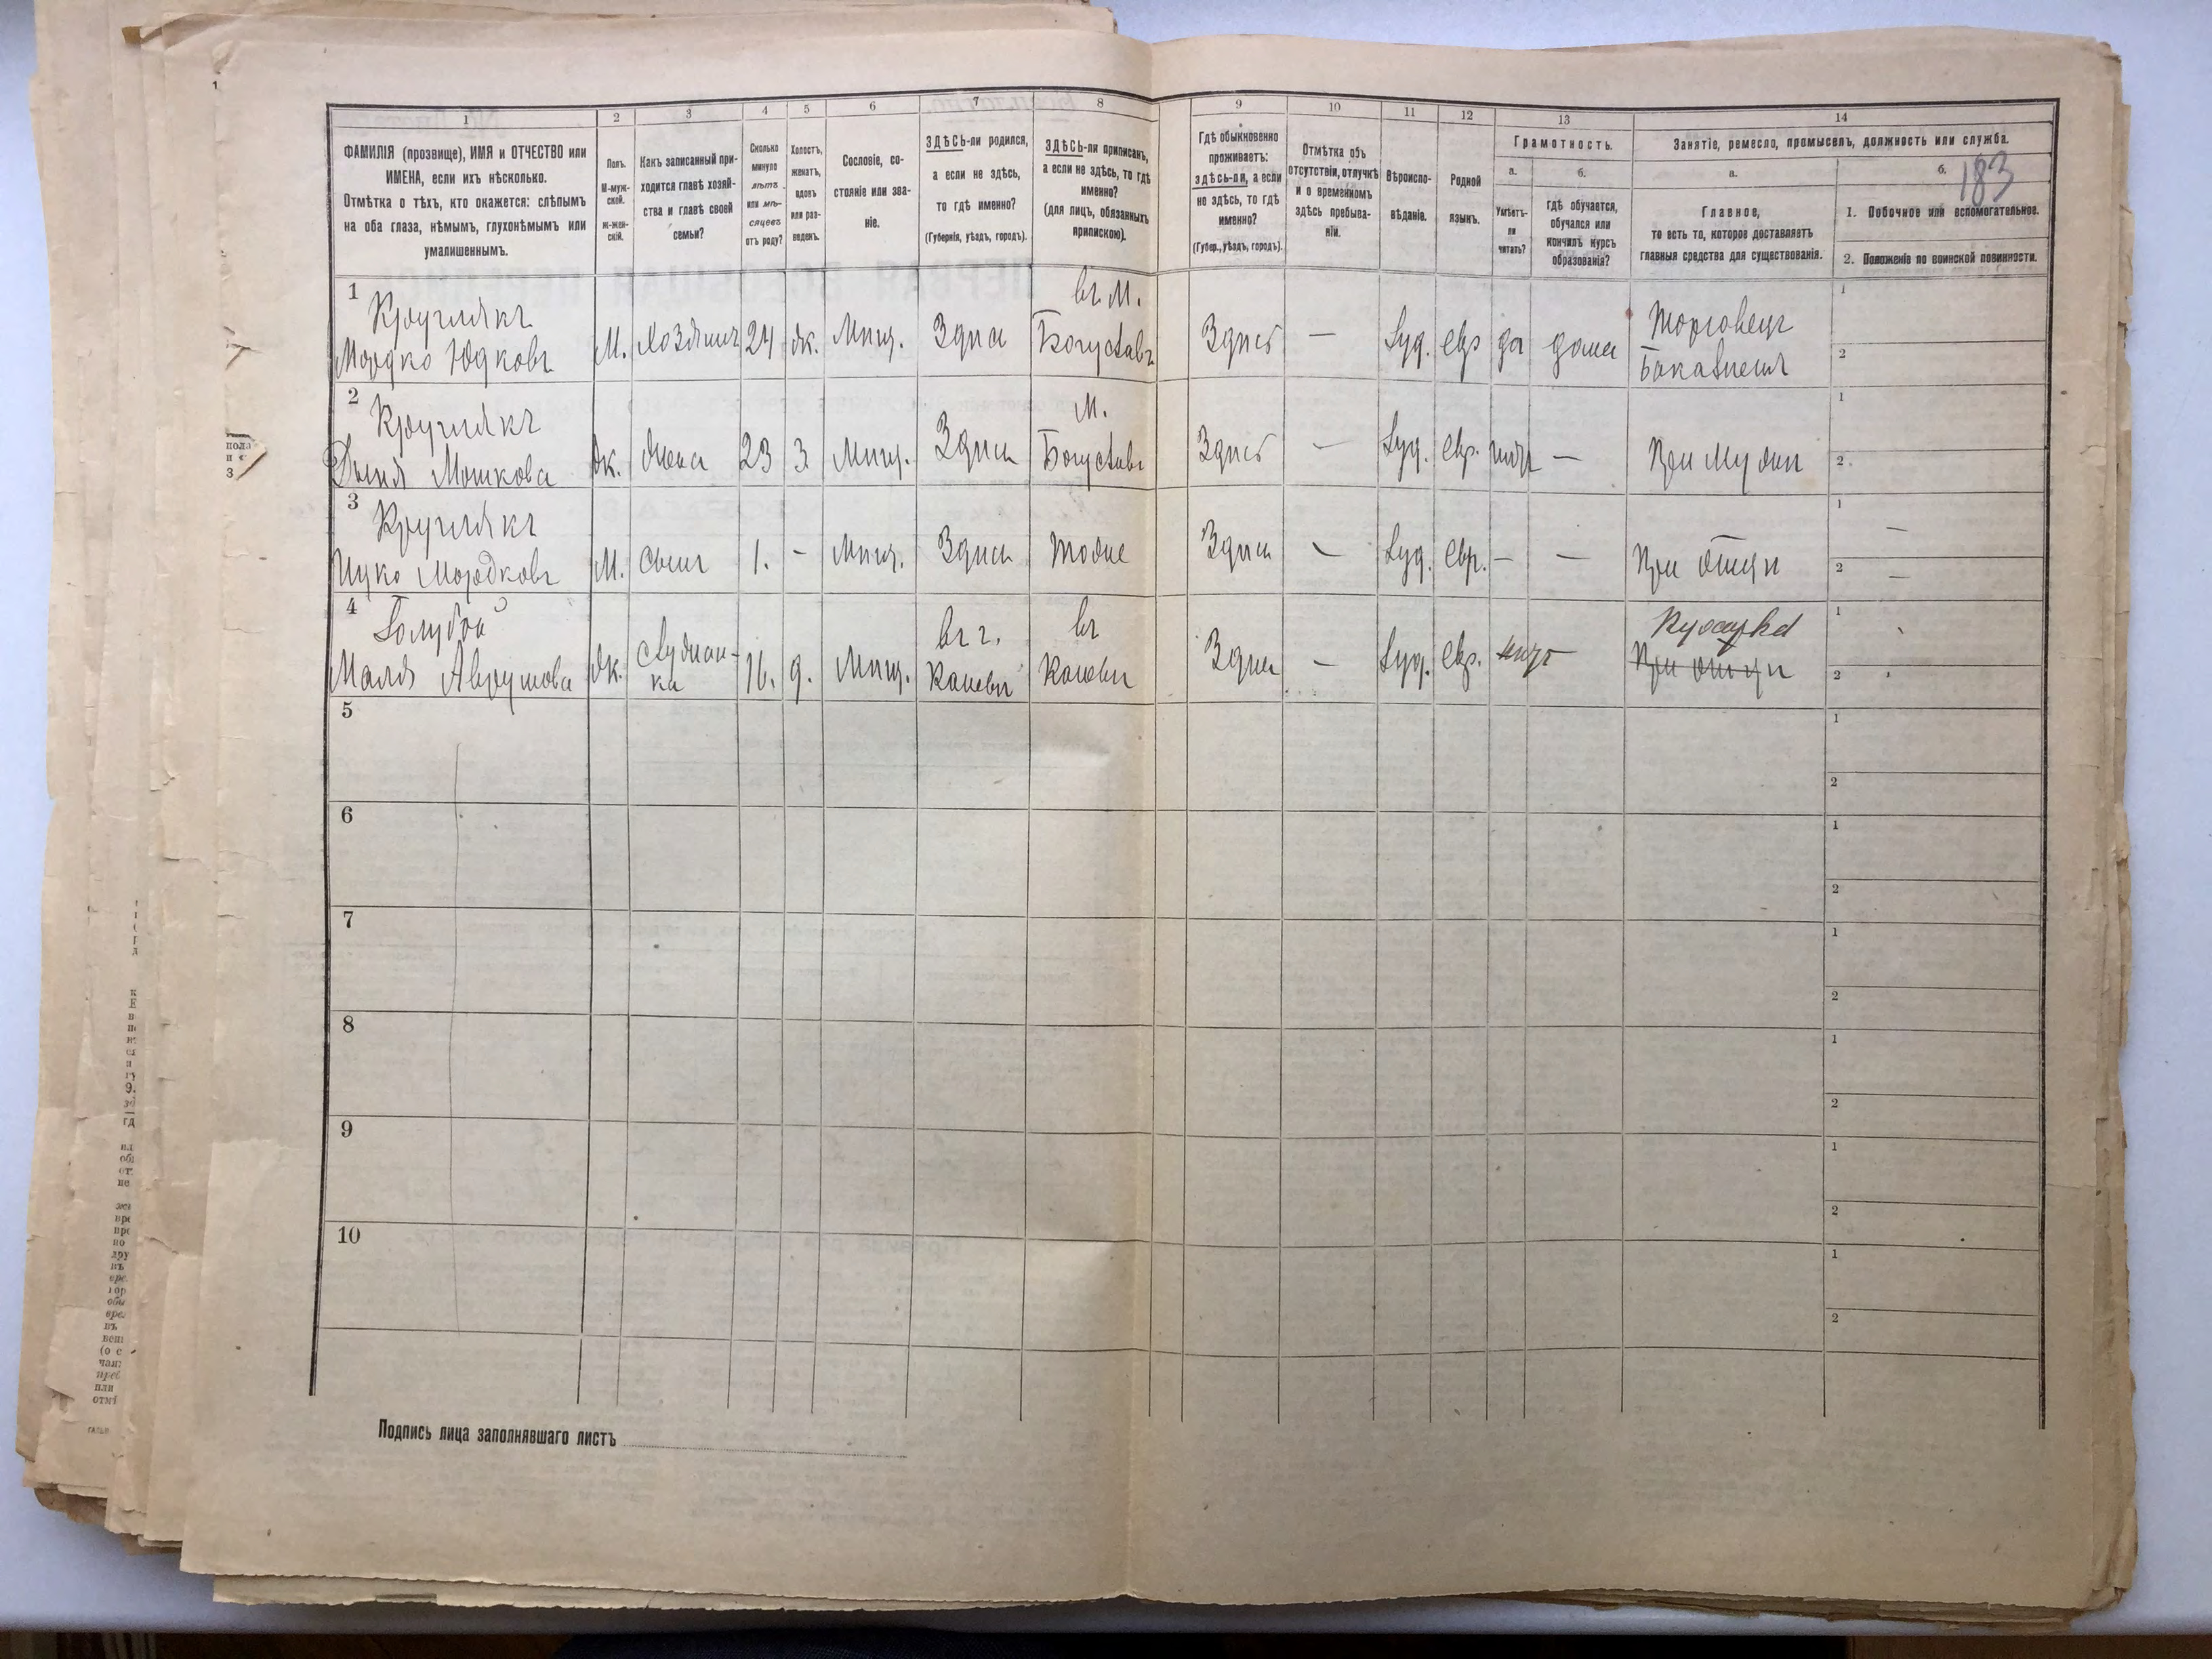 1 2 3 4 5 6 7 8 9 10 11 12 13 14
ФАМИЛІЯ (прозвище), ИМЯ и ОТЧЕСТВО или
ИМЕНА, если ихъ нѣсколько.
Отмѣтка о тѣхъ, кто окажется: слѣпымъ
на оба глаза, нѣмымъ, глухонѣмымъ или
умалишеннымъ.
Полъ.
М-муж-
ской.
Ж-жен-
скій.
Какъ записанный при-
ходится главѣ хозяй-
ства и главѣ своей
семьи?
Сколько
минуло
лѣтъ
или мѣ-
сяцевъ
отъ роду?
Холостъ,
женатъ,
вдовъ
или раз-
веденъ.
Сословіе, со-
стояніе или зва-
ніе.
ЗДѢСЬ-ли родился,
а если не здѣсь,
то гдѣ именно?
(Губернія, уѣздъ, городъ).
ЗДѢСЬ-ли приписанъ,
а если не здѣсь, то гдѣ
именно?
(для лицъ, обязанныхъ
припискою).
Гдѣ обыкновенно
проживаетъ:
здѣсь-ли, а если
не здѣсь, то гдѣ
именно?
(Губер., уѣздъ, городъ).
Отмѣтка объ
отсутствіи, отлучкѣ
и о временномъ
здѣсь пребыва-
ніи.
Вѣроиспо-
вѣданіе.
Родной
языкъ.
Грамотность.
а.
Умѣетъ-
ли
читать?
б.
Гдѣ обучается,
обучался или
кончилъ курсъ
образованія?
Занятіе, ремесло, промыселъ, должность или служба.
а.
Главное,
то есть то, которое доставляетъ
главныя средства для существованія.
б.
183
1. Побочное или вспомогательное.
2. Положеніе по воинской повинности.
1
Круглякъ
Мордко Юдковъ
М.
Хозяинъ
24
Ж.
Мѣщ.
Здѣсь
въ м.
Богуславъ
Здѣсь
—
Іуд.
евр
да
дома
Торговецъ
Бакалѣей
1
2
2
Круглякъ
Мошкова
Ж.
Жена
23
З
Мѣщ.
Здѣсь
м.
Богуславъ
Здѣсь
—
Іуд.
евр.
нѣтъ
—
При мужѣ
1
2
3
Круглякъ
Ицко Мордковъ
М.
Сынъ
1.
-
Мѣщ.
Здѣсь
Тоже
Здѣсь
—
Іуд.
евр.
—
—
При отцѣ
1
—
2
—
4
Голубой
Маля Аврумова
Ж.
Служан-
ка
16.
д.
Мѣщ.
въ г.
Каневѣ
въ
Каневѣ
Здѣсь
—
Іуд.
евр.
нѣтъ
—
Кухарка
При отцѣ
1
2
5
1
2
6
1
2
7
1
2
8
1
2
9
1
2
10
1
2
Подпись лица заполнявшаго листъ